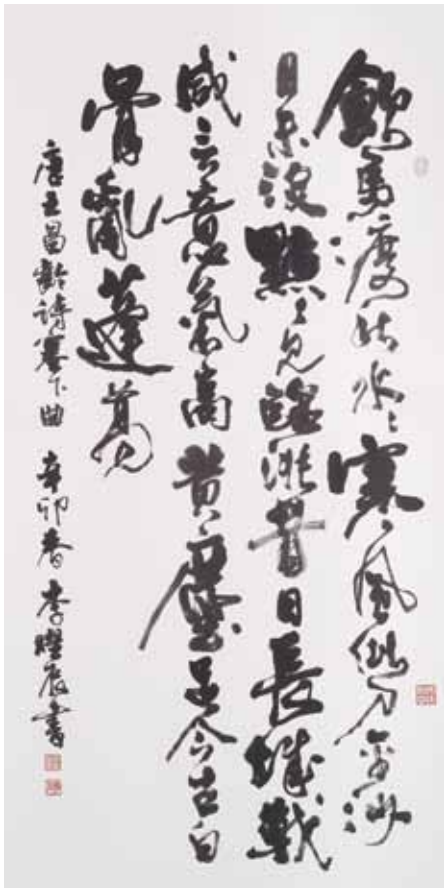 飲馬度秋水々寒風似刀平沙
日未沒黯々見臨洮昔日長城戰
咸言意氣高黃塵足今古白
骨亂蓬蒿
唐王昌齡詩塞下曲 辛卯春 李辰書